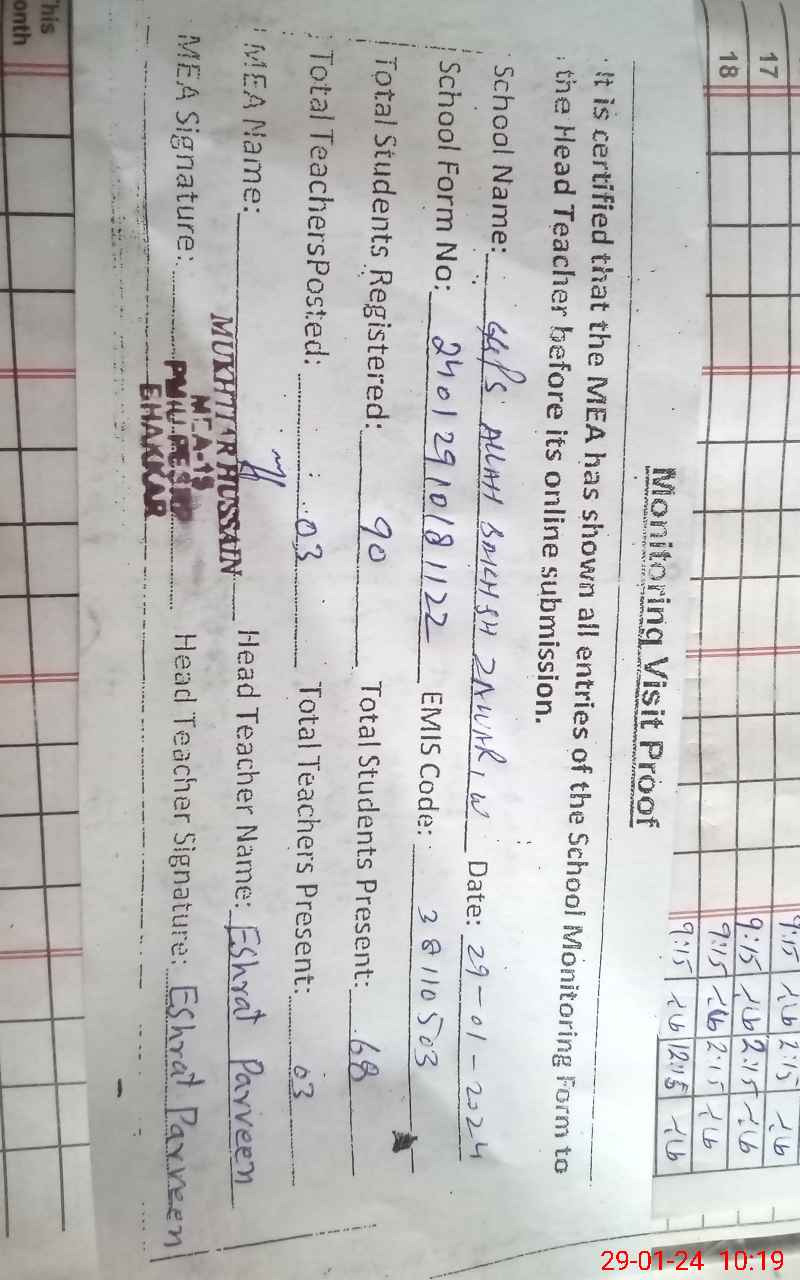 Monitoring Visit Proof
It is certified that the MEA has shown all entries of the School Monitoring Form to
the Head Teacher before its online submission.
School Name: GGPS ALLAH BAKHSH ZAWAR, W Date: 29-01-2024
School Form No: 240129101811 22 EMIS Code: 38110503
Total Students Registered: 90 Total Students Present: 68
Total Teachers Posted: 03 Total Teachers Present: 03
MEA Name: MUKHTIAR HUSSAIN Head Teacher Name: Eshrat Parveen
MEA Signature: MEA-19 Head Teacher Signature: Eshrat Parveen
BHAKKAR
17
18
9:15 2:15
9:15 2:15
9:15 2:15
9:15 12:15
This
onth
29-01-24 10:19